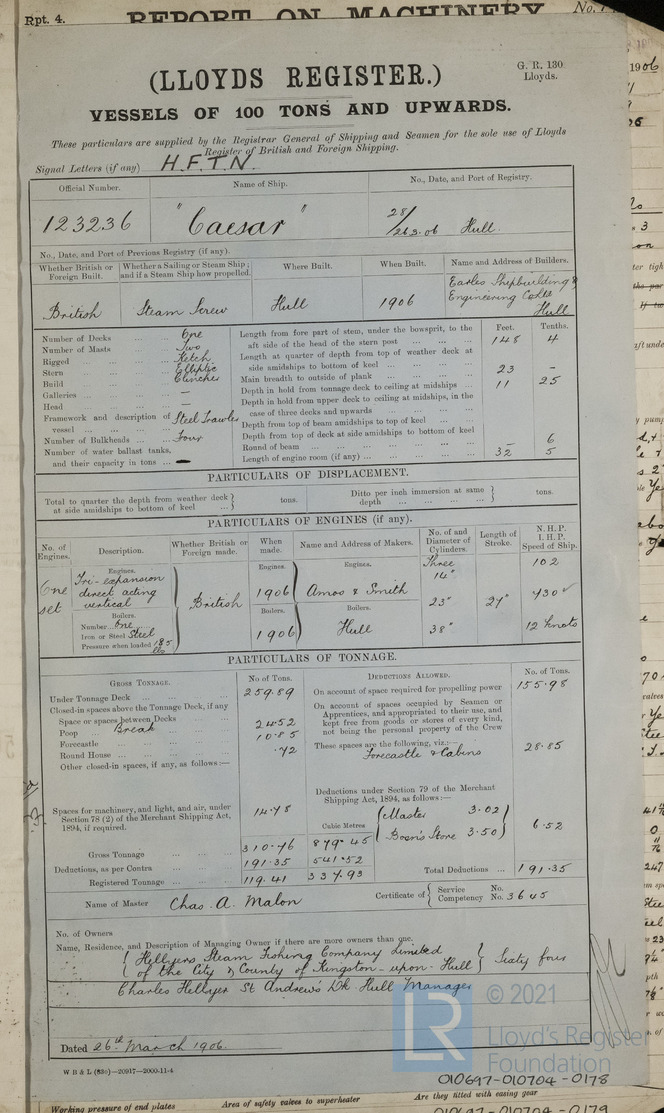 Rpt. 4.
REPORT ON MACHINERY
No.
(LLOYDS REGISTER.)
G. R. 130
Lloyds.
VESSELS OF 100 TONS AND UPWARDS.
These particulars are supplied by the Registrar General of Shipping and Seamen for the sole use of Lloyds
Register of British and Foreign Shipping.
Signal Letters (if any) H.F.T.N.
Official Number. Name of Ship. No., Date, and Port of Registry.
123236 "Caesar" 28/26.3.06 Hull
No., Date, and Port of Previous Registry (if any).
Whether British or Foreign Built. Whether a Sailing or Steam Ship; and if a Steam Ship how propelled. Where Built. When Built. Name and Address of Builders.
British Steam Screw Hull 1906 Earles Shipbuilding & Engineering Co Ltd Hull
Feet. Tenths.
Number of Decks ... One
Number of Masts ... Two
Rigged ... Ketch
Stern ... Elliptic
Build ... Clincher
Galleries ... —
Head ... —
Framework and description of vessel ... Steel Trawler
Number of Bulkheads ... Four
Number of water ballast tanks, and their capacity in tons ... —
Length from fore part of stem, under the bowsprit, to the aft side of the head of the stern post ... 148 4
Length at quarter of depth from top of weather deck at side amidships to bottom of keel ...
Main breadth to outside of plank ... 23 –
Depth in hold from tonnage deck to ceiling at midships ... 11 25
Depth in hold from upper deck to ceiling at midships, in the case of three decks and upwards ...
Depth from top of beam amidships to top of keel ...
Depth from top of deck at side amidships to bottom of keel
Round of beam ... – 6
Length of engine room (if any) ... 32 5
PARTICULARS OF DISPLACEMENT.
Total to quarter the depth from weather deck at side amidships to bottom of keel ... } tons. Ditto per inch immersion at same depth ... } tons.
PARTICULARS OF ENGINES (if any).
No. of Engines. Description. Whether British or Foreign made. When made. Name and Address of Makers. No. of and Diameter of Cylinders. Length of Stroke. N. H. P. I. H. P. Speed of Ship.
Engines. Engines. Engines. Three 102
One set Tri-expansion direct acting vertical British 1906 Amos & Smith 14" 23" 38" 27" 430
Boilers. Boilers. Boilers.
Number One
Iron or Steel Steel
Pressure when loaded 185 lbs
1906 Hull 12 knots
PARTICULARS OF TONNAGE.
Gross Tonnage. No of Tons. Deductions Allowed. No. of Tons.
Under Tonnage Deck ... 259.89
Closed-in spaces above the Tonnage Deck, if any
Space or spaces between Decks
Poop Break 24.52
Forecastle ... 10.85
Round House ... .72
Other closed-in spaces, if any, as follows:—
Spaces for machinery, and light, and air, under Section 78 (2) of the Merchant Shipping Act, 1894, if required. 14.78
Cubic Metres
Gross Tonnage ... 310.76 879.45
Deductions, as per Contra ... 191.35 541.52
Registered Tonnage ... 119.41 337.93
On account of space required for propelling power 155.98
On account of spaces occupied by Seamen or Apprentices, and appropriated to their use, and kept free from goods or stores of every kind, not being the personal property of the Crew
These spaces are the following, viz.:—
Forecastle & Cabins 28.85
Deductions under Section 79 of the Merchant Shipping Act, 1894, as follows:—
Master 3.02
Boson's Store 3.50 6.52
Total Deductions ... 191.35
Name of Master Chas. A. Malon Certificate of { Service No. Competency No. 3645
No. of Owners
Name, Residence, and Description of Managing Owner if there are more owners than one.
Hellyers Steam Fishing Company Limited
of the City & County of Kingston-upon-Hull } Sixty four
Charles Hellyer St Andrew's Dk Hull Manager
Dated 26th March 1906.
W B & L (830)—20917—2000-11-4
LR © 2021
Lloyd's Register
Foundation
010697-010704-0178
Working pressure of end plates Area of safety valves to superheater Are they fitted with easing gear